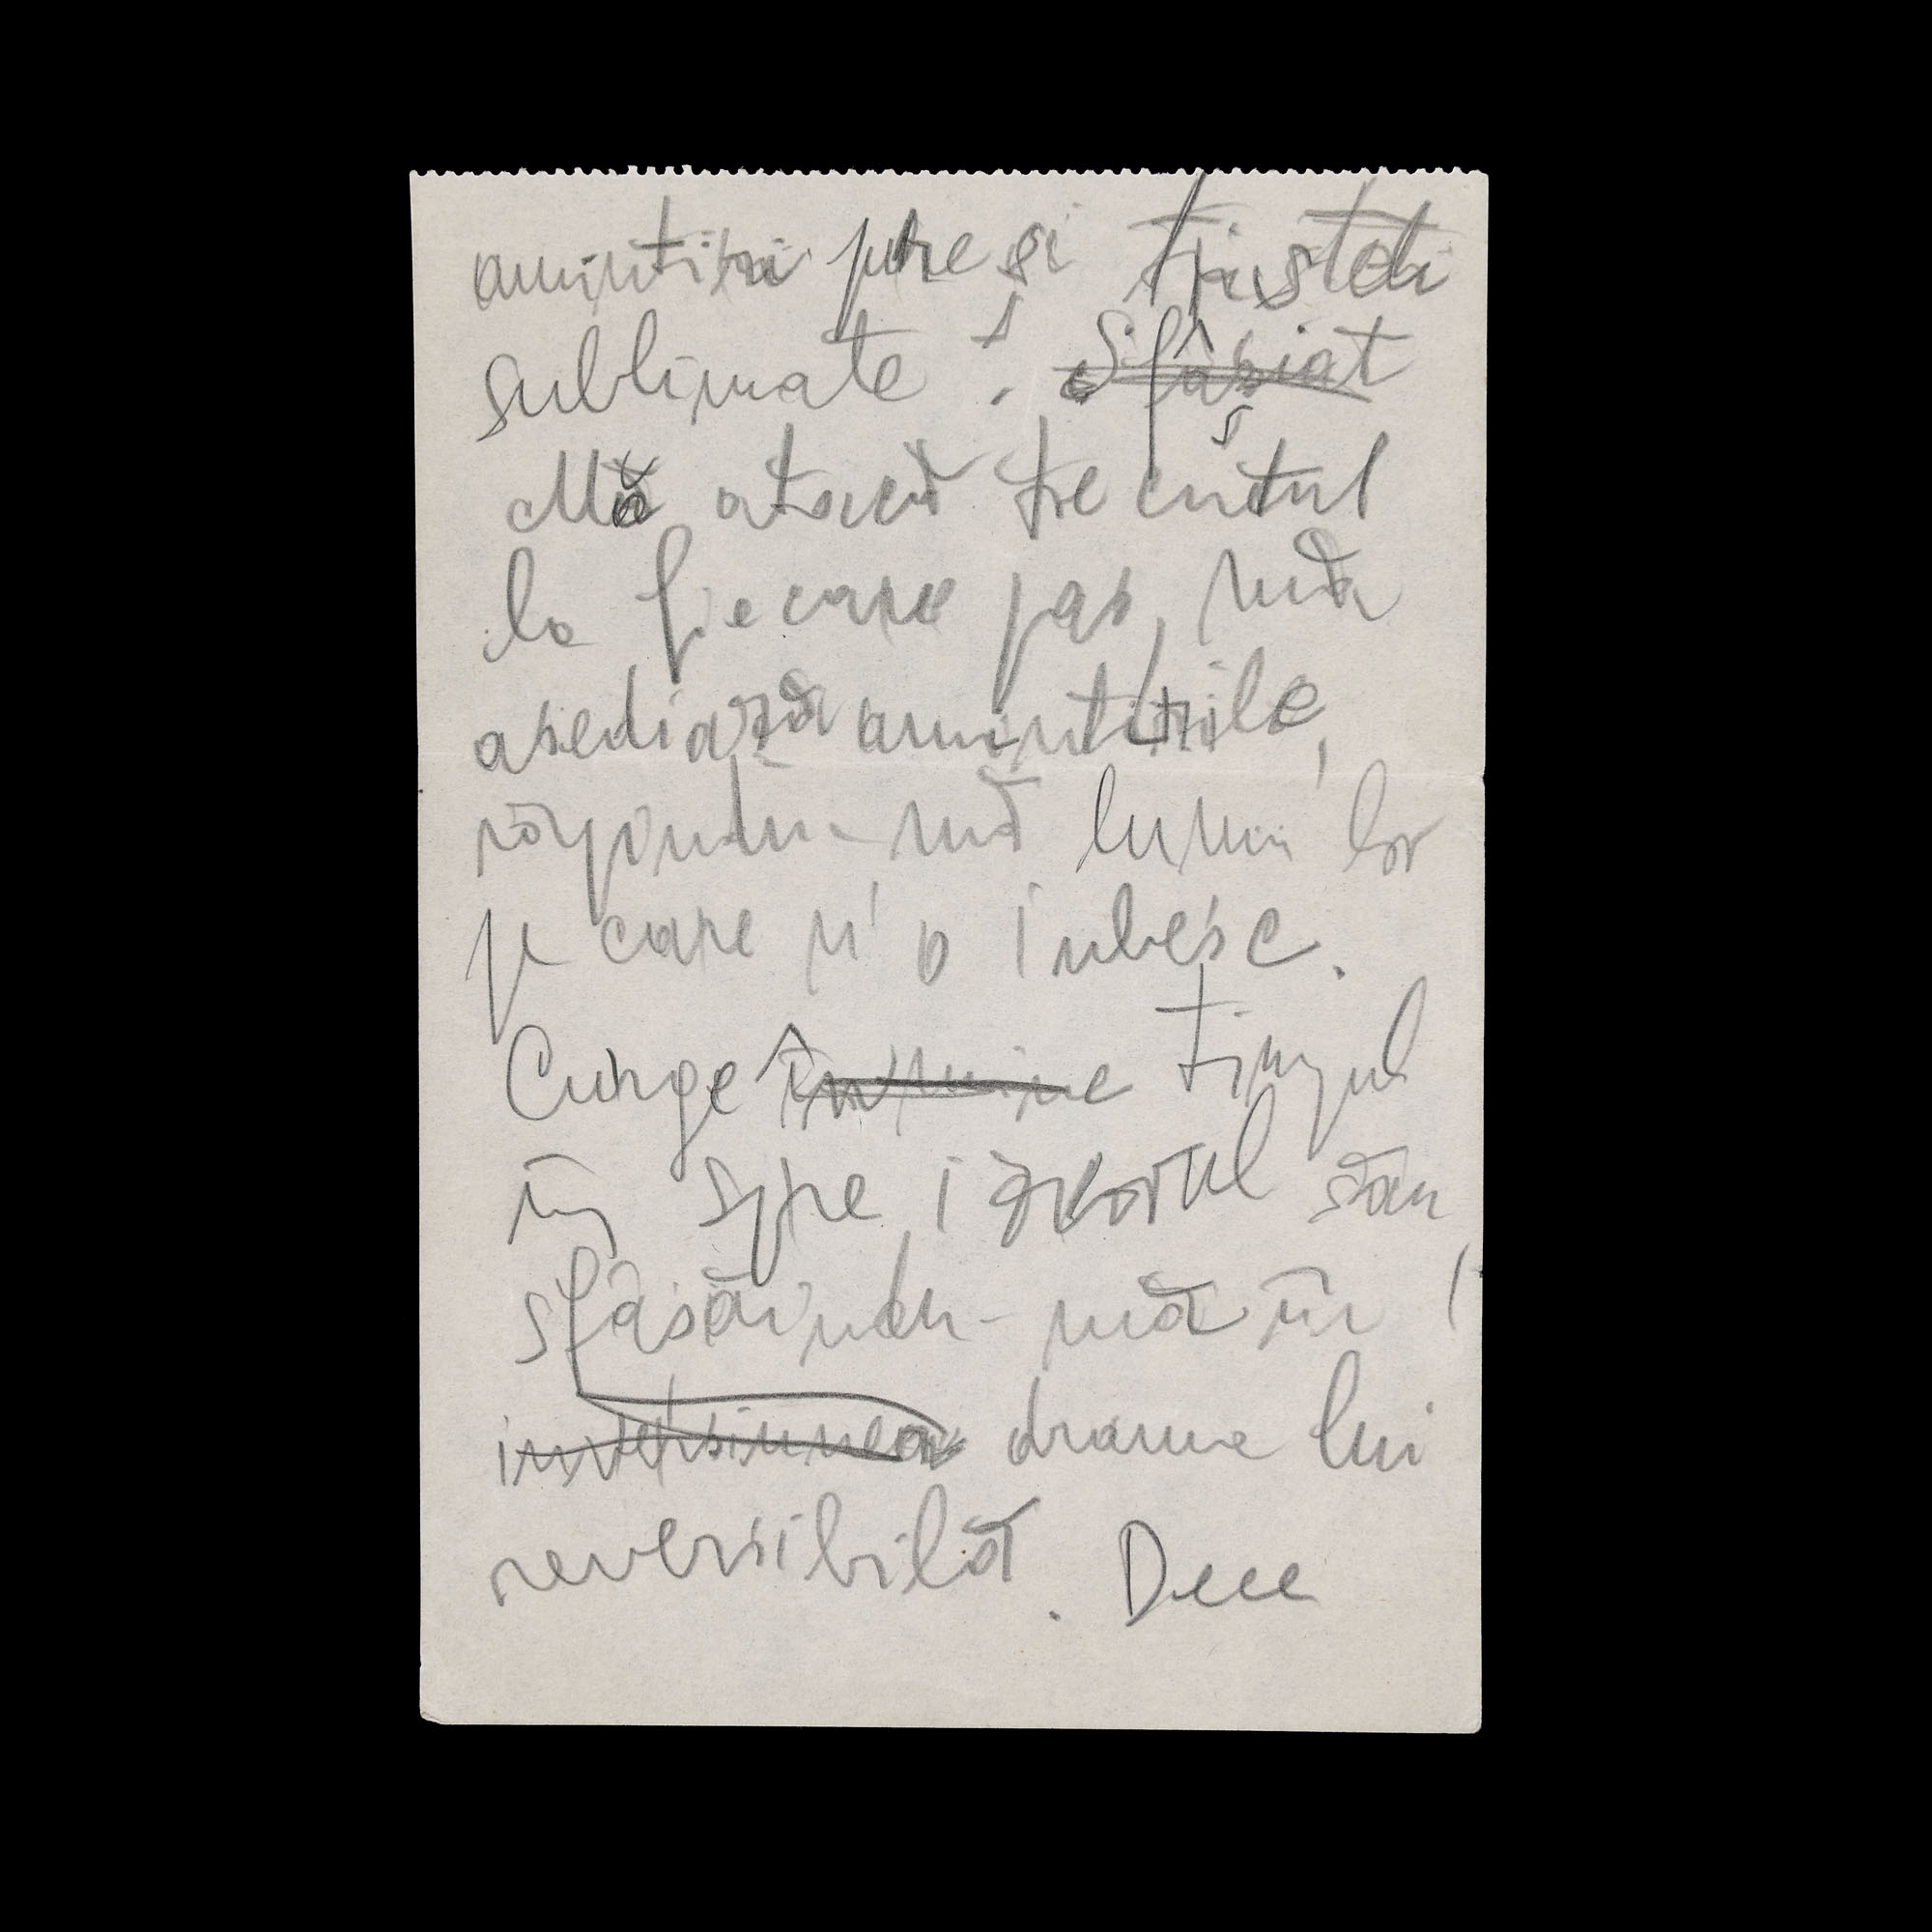 amintiri pure și tristeți
sublimate. Sfâșiat
Mă atacă trecutul
la fiecare pas, mă
asediază amintirile,
răspund mă lumii lor
pe care n'o iubesc.
Curge în mine timpul
în spre izvorul său
sfâșăindu-mă în
inversiunea drama lui
reversibilă. Dece